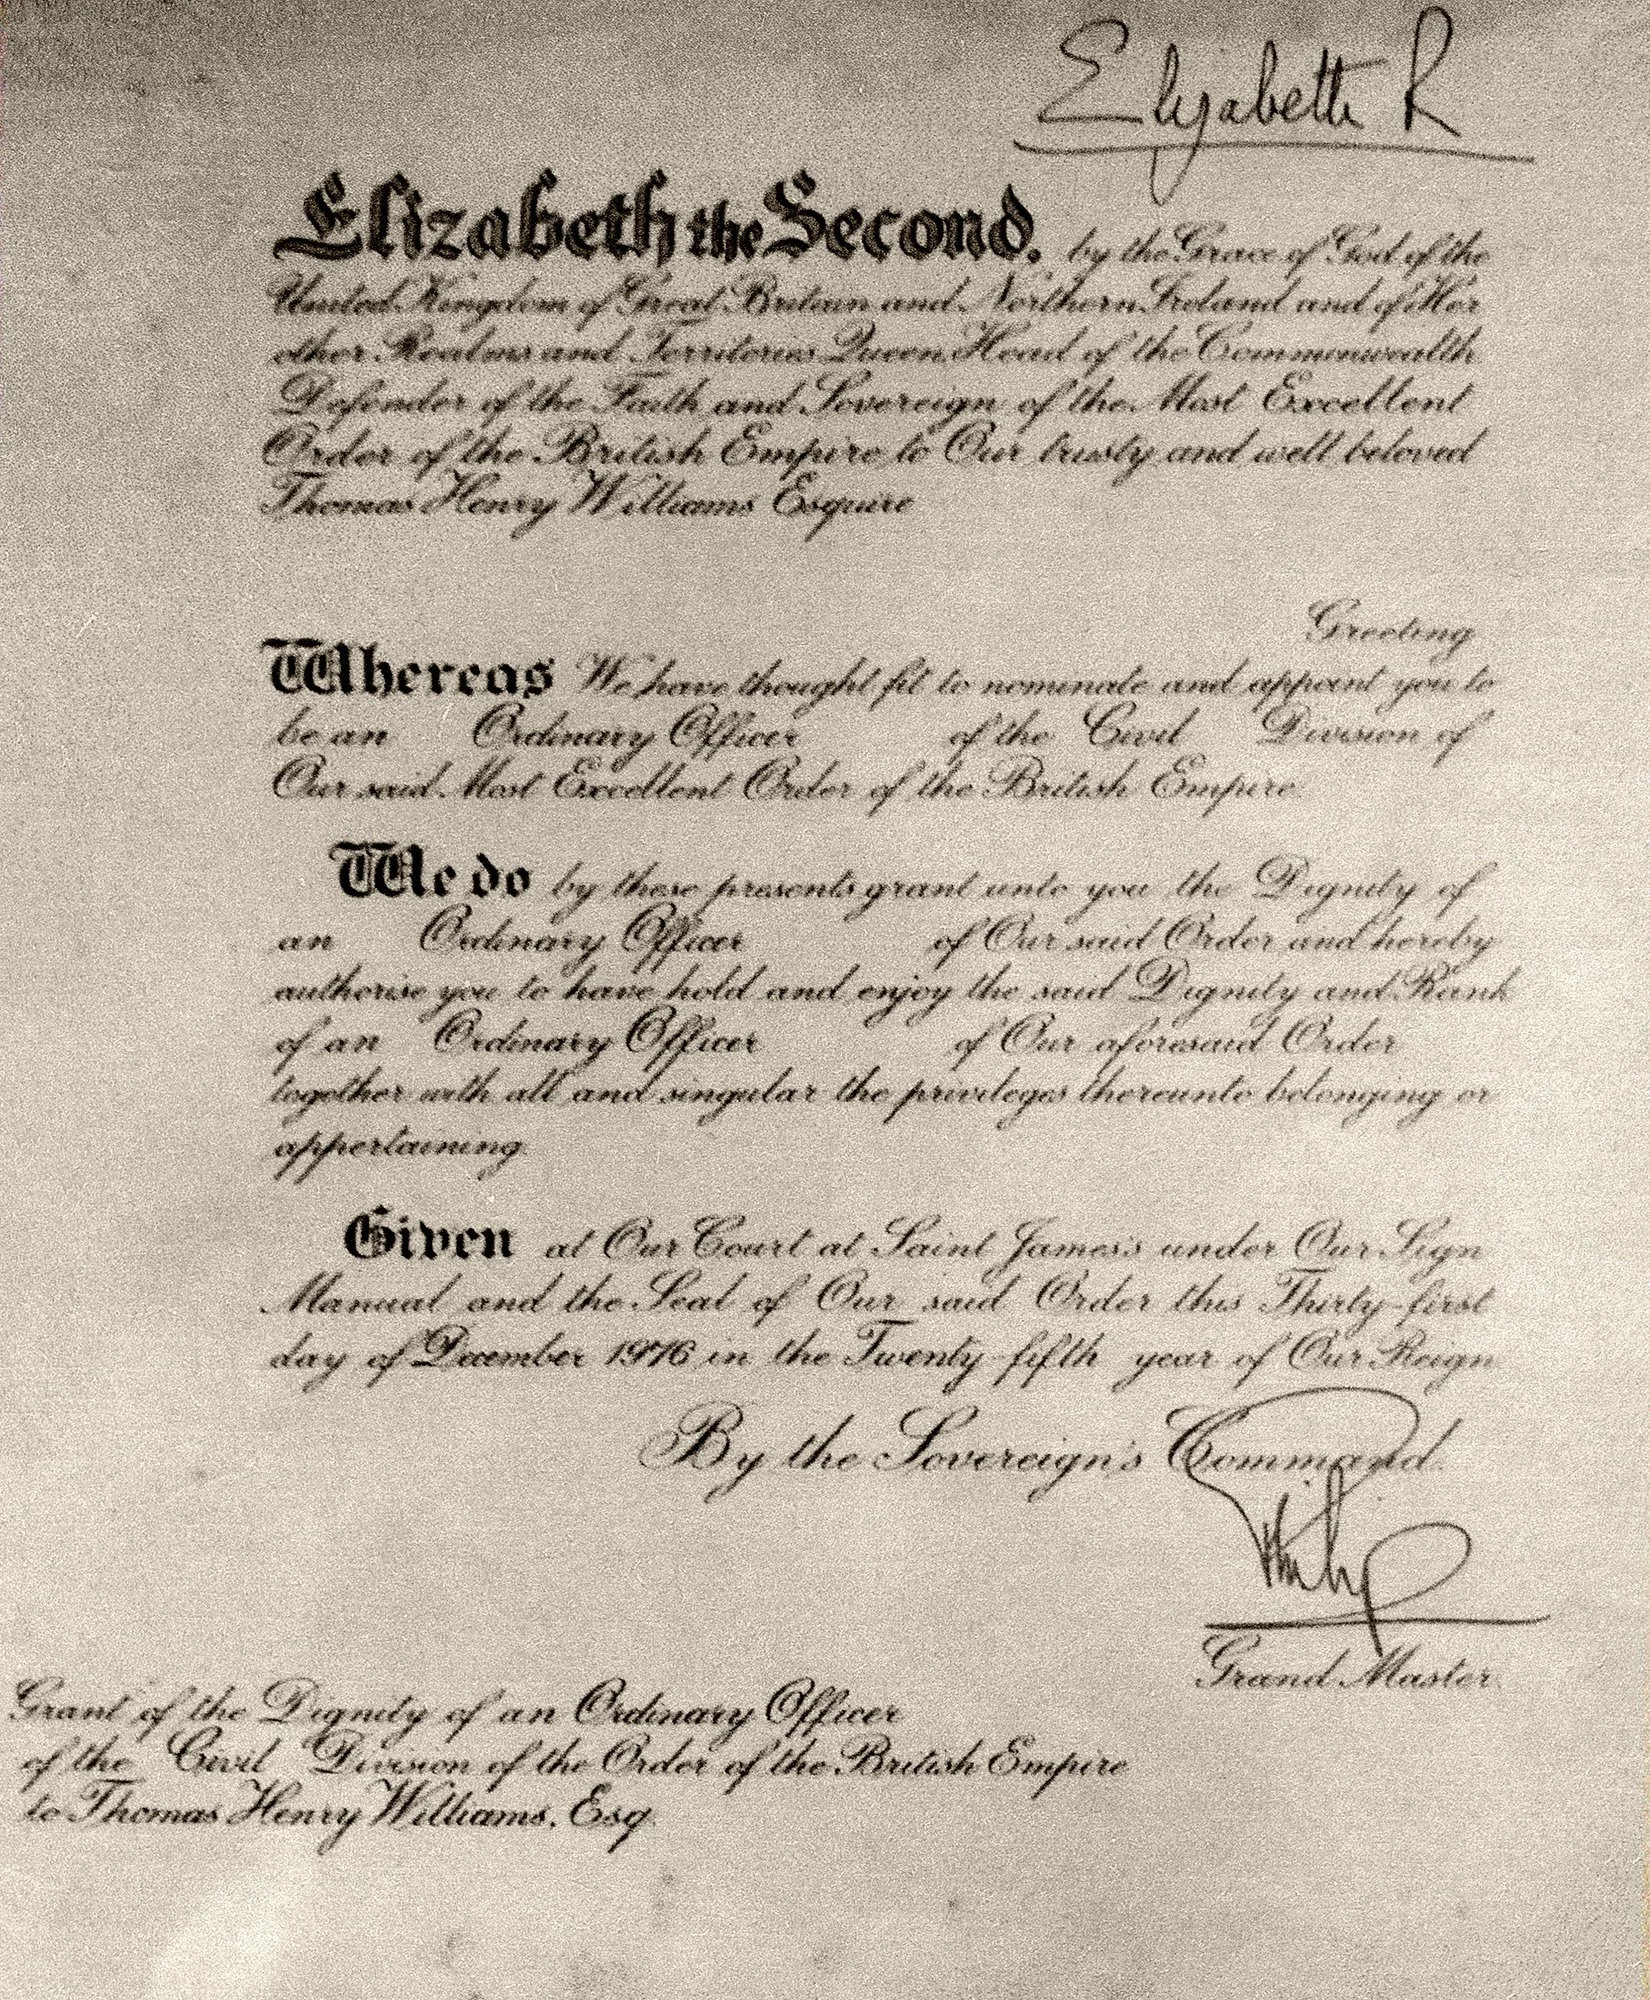 Elizabeth R
Elizabeth the Second, by the Grace of God of the
United Kingdom of Great Britain and Northern Ireland and of Her
other Realms and Territories Queen, Head of the Commonwealth
Defender of the Faith and Sovereign of the Most Excellent
Order of the British Empire to Our trusty and well beloved
Thomas Henry Williams Esquire
Greeting
Whereas We have thought fit to nominate and appoint you to
be an Ordinary Officer of the Civil Division of
Our said Most Excellent Order of the British Empire
We do by these presents grant unto you the Dignity of
an Ordinary Officer of Our said Order and hereby
authorise you to have hold and enjoy the said Dignity and Rank
of an Ordinary Officer of Our aforesaid Order
together with all and singular the privileges thereunto belonging or
appertaining.
Given at Our Court at Saint James's under Our Sign
Manual and the Seal of Our said Order this Thirty-first
day of December 1976 in the Twenty-fifth year of Our Reign
By the Sovereign's Command.
Philip
Grand Master.
Grant of the Dignity of an Ordinary Officer
of the Civil Division of the Order of the British Empire
to Thomas Henry Williams, Esq.